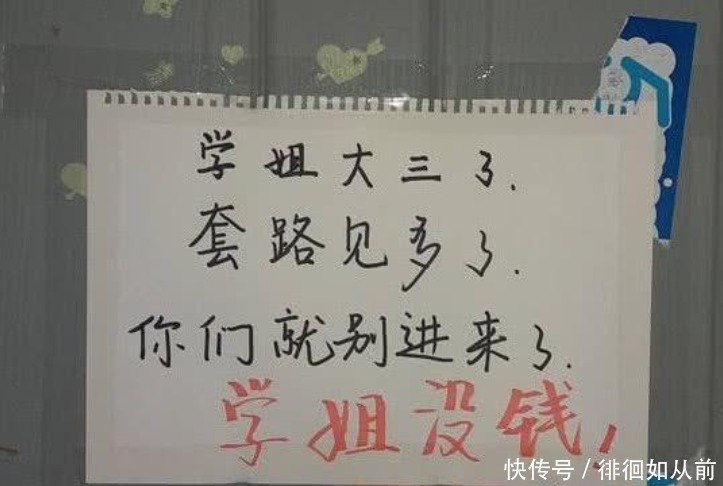 学姐大三了.
套路见多了.
你们就别进来了.
学姐没钱!
快传号/徘徊如从前